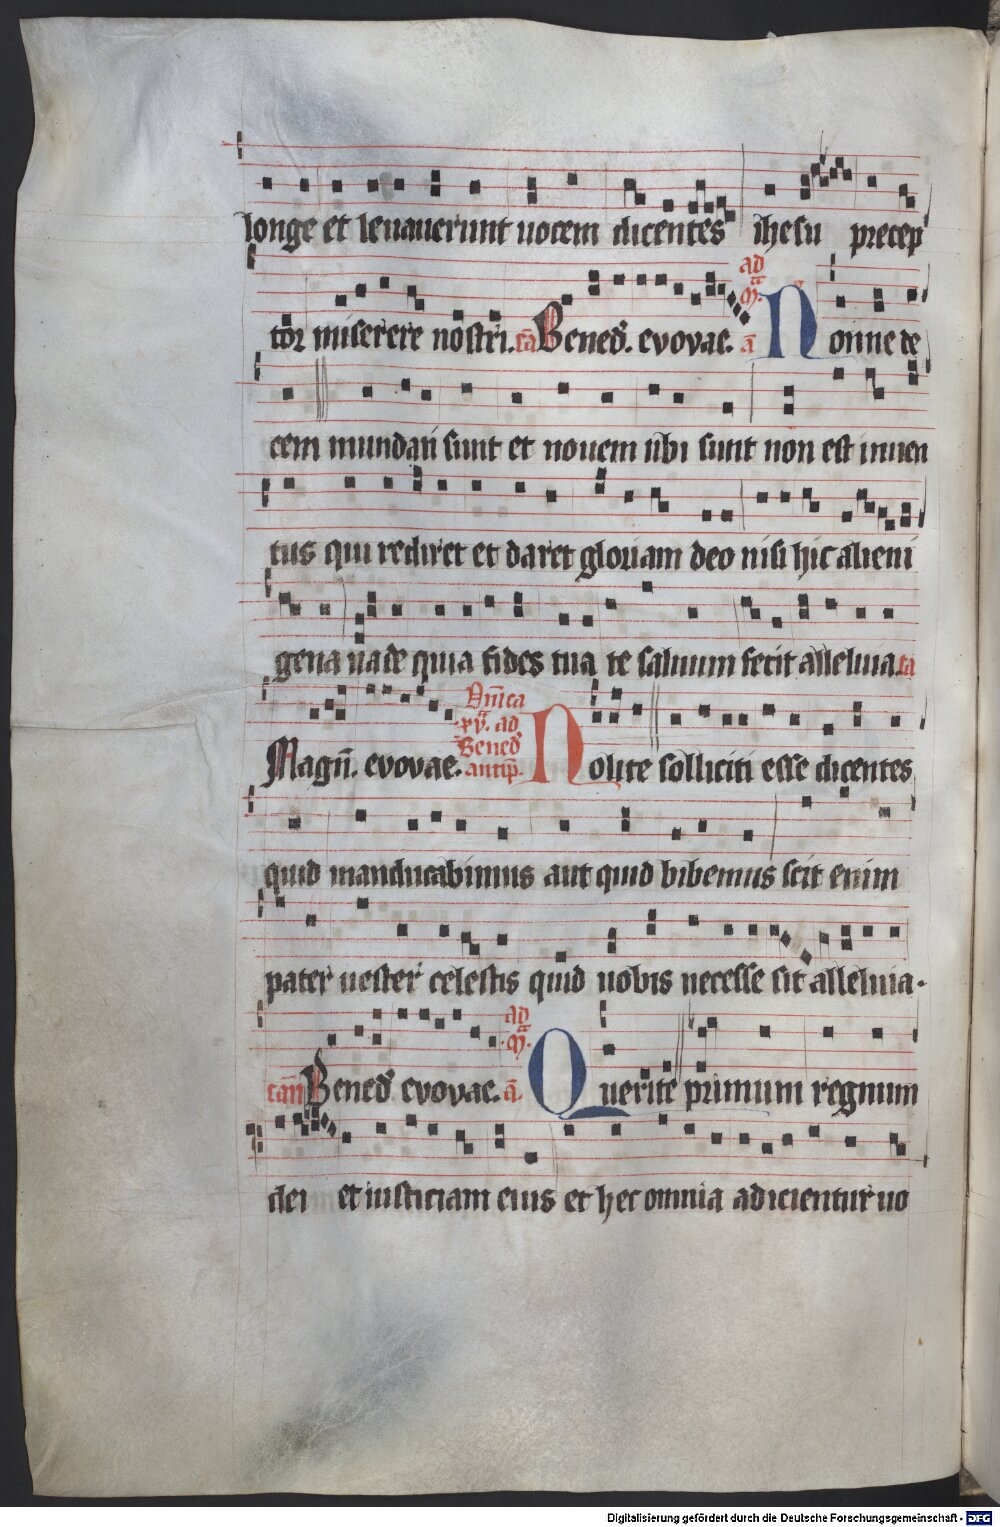 longe et leuauerunt uocem dicentes ihesu precep
tor miserere nostri. cā Bened̄. evovae. ad M̄. ā Nonne de
cem mundati sunt et nouem ubi sunt non est inuen
tus qui rediret et daret gloriam deo nisi hic alieni
gena uade quia fides tua te saluum fecit alleluia. ca
Magn̄. evovae. Dn̄ica xv. ad Bened̄ antip̄. Nolite solliciti esse dicentes
quid manducabimus aut quid bibemus scit enim
pater uester celestis quid uobis necesse sit alleluia.
cān Bened̄ evovae. ad M̄. ā. Querite primum regnum
dei et iusticiam eius et hec omnia adicientur uo
Digitalisierung gefördert durch die Deutsche Forschungsgemeinschaft - DFG